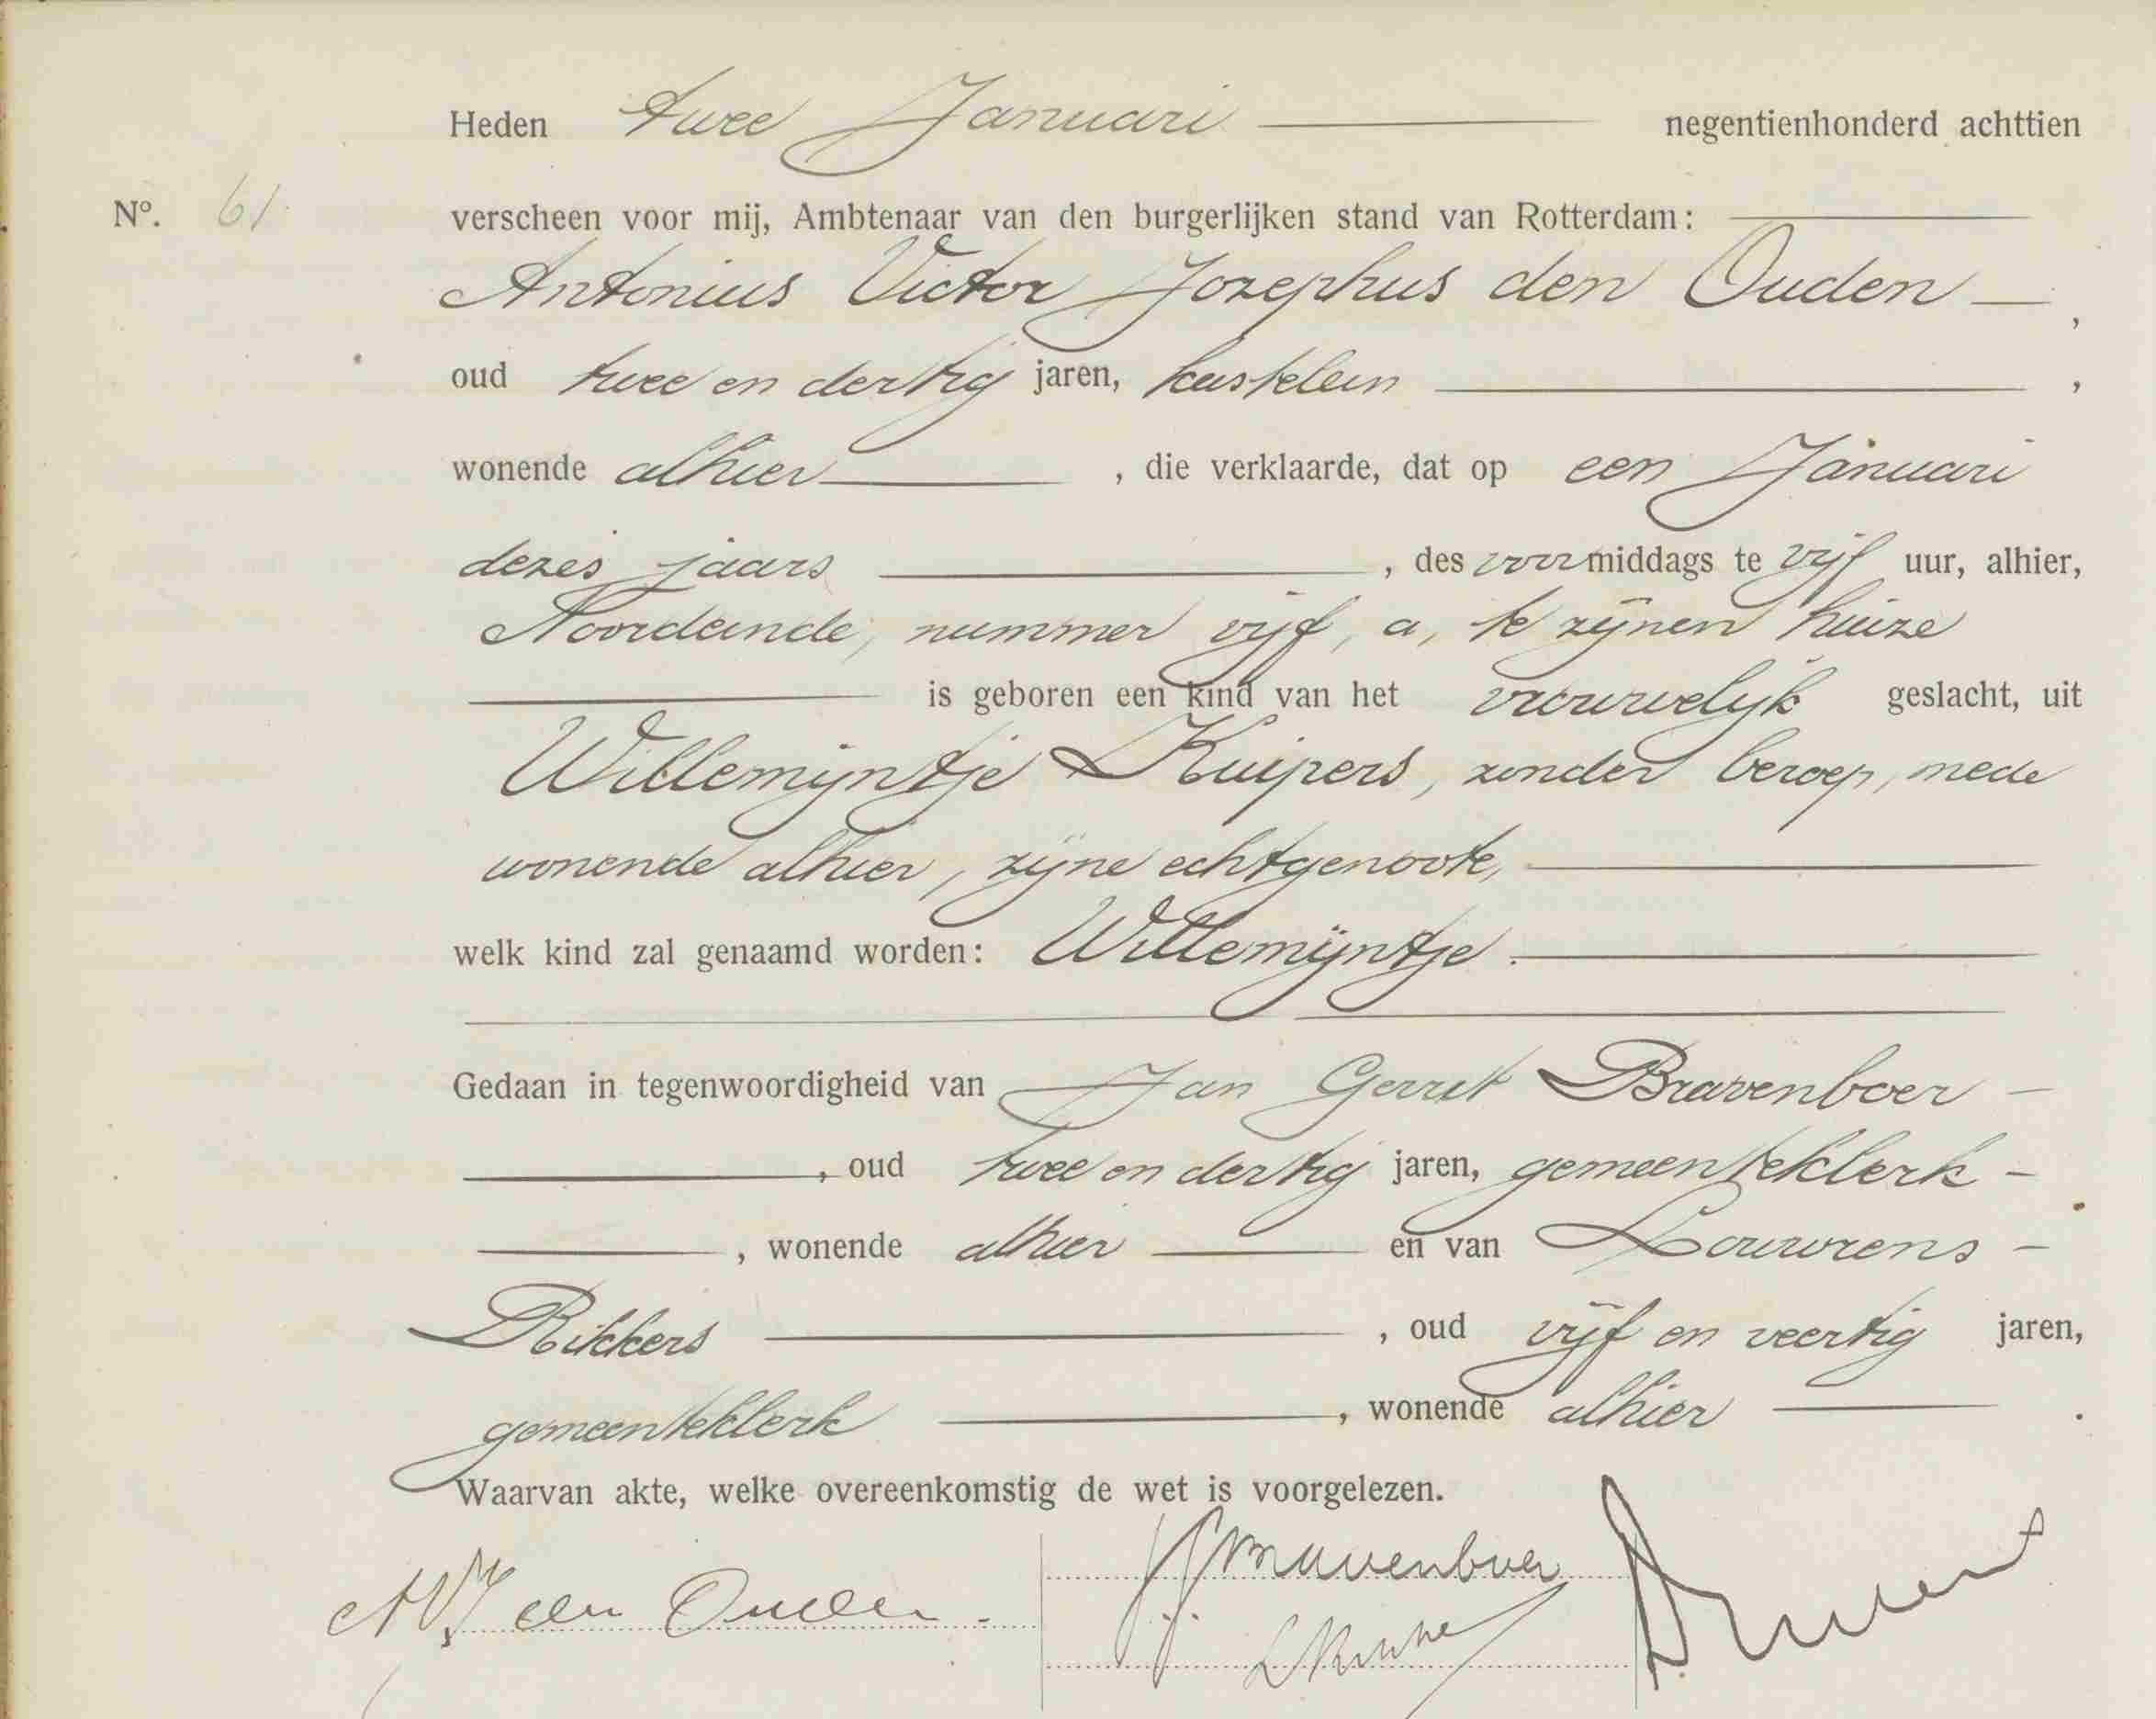 Heden twee Januari negentienhonderd achttien
No. 61. verscheen voor mij, Ambtenaar van den burgerlijken stand van Rotterdam:
Antonius Victor Jozephus den Ouden,
oud twee en dertig jaren, kastelein,
wonende alhier, die verklaarde, dat op een Januari
dezes jaars, des voormiddags te vijf uur, alhier,
Noordeinde, nummer vijf, a, te zijnen huize
is geboren een kind van het vrouwelijk geslacht, uit
Willemijntje Kuipers, zonder beroep, mede
wonende alhier, zijne echtgenoote,
welk kind zal genaamd worden: Willemijntje.
Gedaan in tegenwoordigheid van Jan Gerrit Bravenboer
, oud twee en dertig jaren, gemeenteklerk
, wonende alhier en van Louwrens
Rikkers, oud vijf en veertig jaren,
gemeenteklerk, wonende alhier.
Waarvan akte, welke overeenkomstig de wet is voorgelezen.
AVJ den Ouden.
JGBravenboer